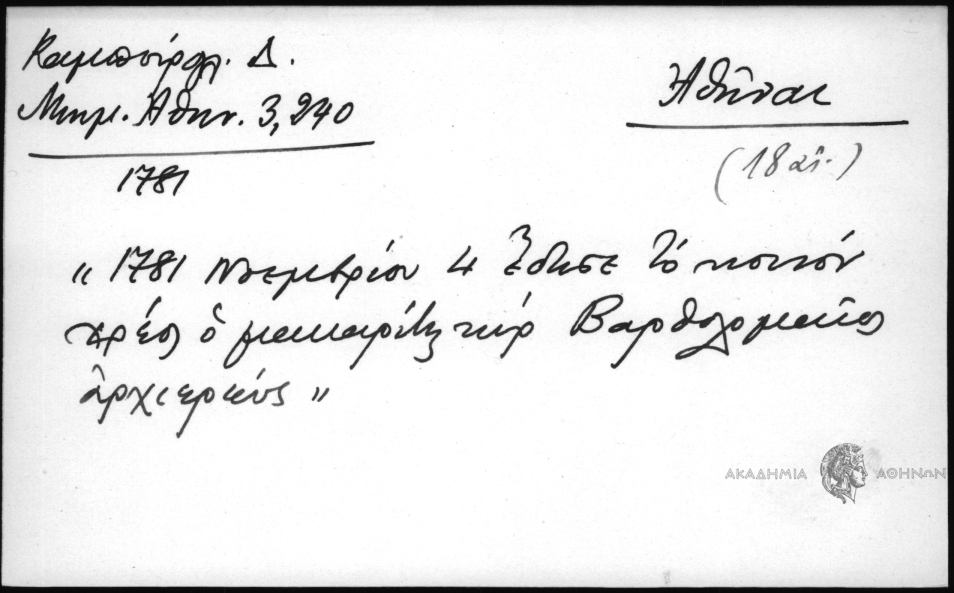 Καμπούρογλ. Δ.
Μνημ. Ἀθην. 3, 240
1781
Ἀθῆναι
(18 αἰ.)
" 1781 Νοεμβρίου 4 ἔδωσε τὸ κοινόν
χρέος ὁ μακαρίτης κὺρ Βαρθολομαῖος
ἀρχιερεύς "
ΑΚΑΔΗΜΙΑ ΑΘΗΝΩΝ